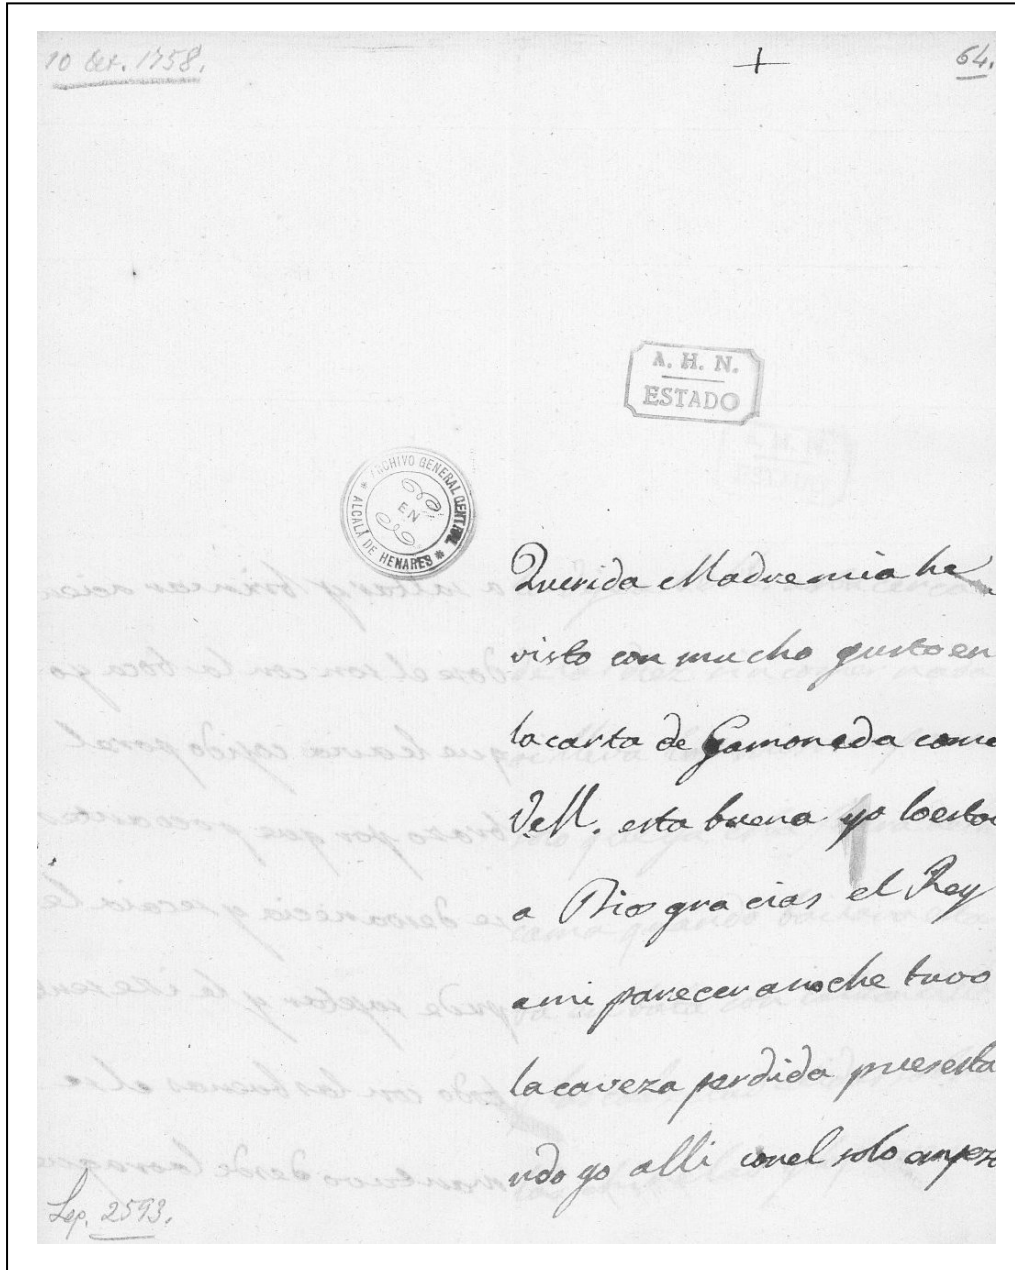 10 Oct. 1758.
+
64.
A. H. N.
ESTADO
ARCHIVO GENERAL CENTRAL
EN
ALCALÁ DE HENARES
Querida Madre mia he
visto con mucho gusto en
la carta de Gamoneda como
V.M. esta buena yo lo estoi
a Dios gracias el Rey
a mi parecer anoche tuvo
la caveza perdida pues esta
ndo yo alli con el solo empezo
Leg. 2593.